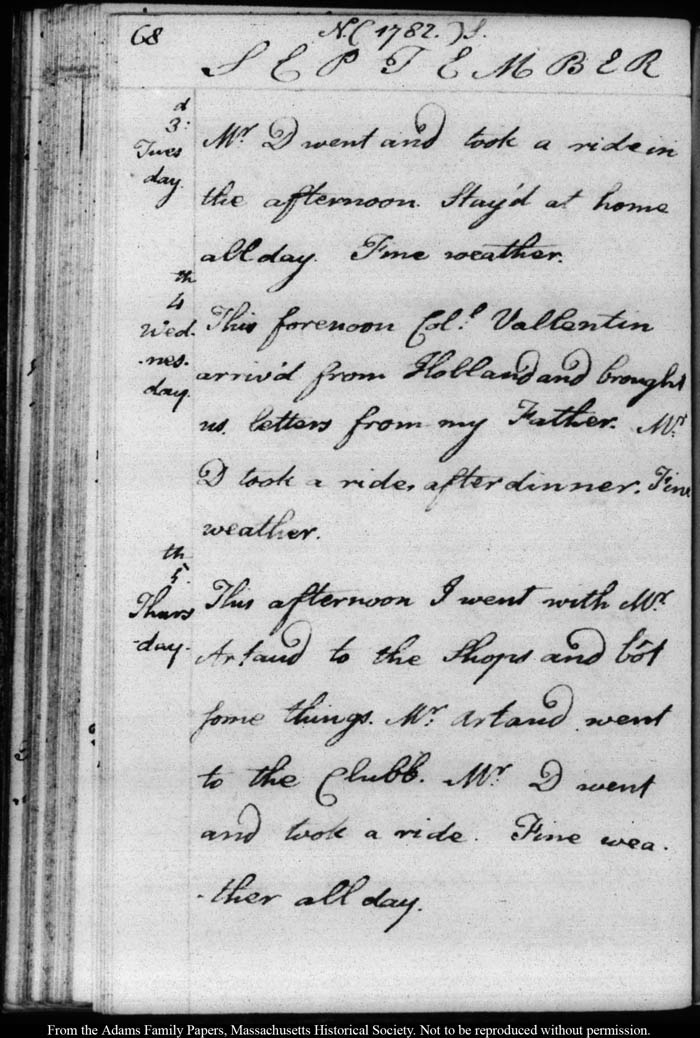 68
N. ( 1782. ) S.
SEPTEMBER
d
3:
Tues
day.
Mr. D went and took a ride in
the afternoon. Stay'd at home
all day. Fine weather.
th
4
Wed-
-nes-
day.
This forenoon Col.l Vallentin
arriv'd from Holland and brought
us letters from my Father. Mr.
D took a ride, after dinner. Fine
weather.
th
5.
Thurs
-day.
This afternoon I went with Mr.
Artaud to the Shops and bôt
some things. Mr. Artaud went
to the Clubb. Mr. D went
and took a ride. Fine wea-
-ther all day.
From the Adams Family Papers, Massachusetts Historical Society. Not to be reproduced without permission.